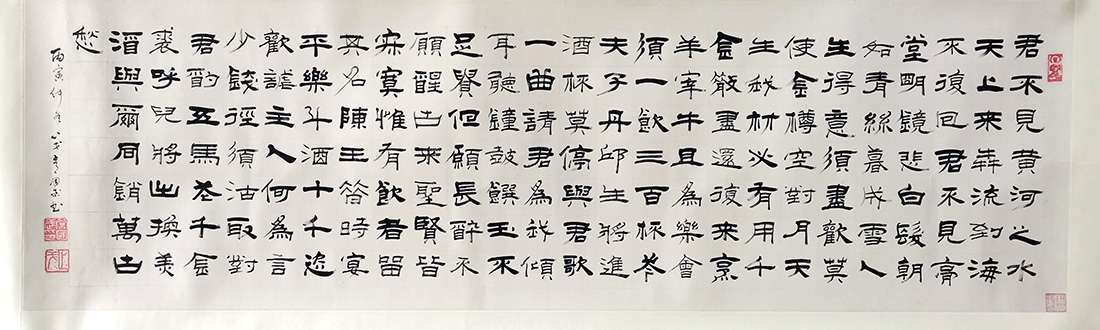 君不見黄河之水
天上来犇流到海
不復回君不見高
堂明鏡悲白髮朝
如青絲暮成雪人
生得意須盡歡莫
使金樽空對月天
生我材必有用千
金散盡還復来烹
羊宰牛且為樂會
須一飲三百杯岑
夫子丹邱生將進
酒杯莫停與君歌
一曲請君為我傾
耳聽鐘鼓饌玉不
足貴但願長醉不
願醒古来聖賢皆
寂寞惟有飲者留
其名陳王昔時宴
平樂斗酒十千恣
歡謔主人何為言
少錢徑須沽取對
君酌五馬花千金
裘呼兒將出換美
酒與爾同銷萬古
愁
丙寅仲冬八十書